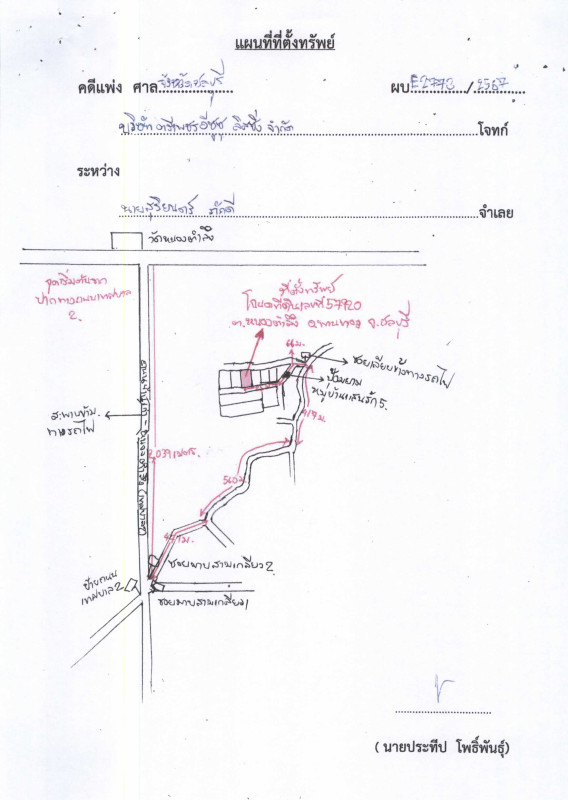 แผนที่ที่ตั้งทรัพย์
คดีแพ่ง ศาลจังหวัดชลบุรี ผบ.E2772/2567
บริษัท ตรีเพชรอีซูซุ ลิสซิ่ง จำกัด โจทก์
ระหว่าง
นายสุริยนตร์ ภักดี จำเลย
วัดหนองตำลึง
จุดเริ่มต้นจาก
ปากทางถนนเทศบาล
2.
ที่ตั้งทรัพย์
โฉนดที่ดินเลขที่ 57920
ต.หนองตำลึง อ.พานทอง จ.ชลบุรี
66 ม.
ซอยเลียบข้างทางรถไฟ
ป้อมยาม
หมู่บ้านแสนรัก 5.
417 ม.
สะพานข้าม.
ทางรถไฟ
2,039 เมตร.
560 ม.
451 ม.
ซอยมาบสามเกลียว 2.
ป้ายถนน
เทศบาล 2
ซอยมาบสามเกลียว 1
(นายประทีป โพธิ์พันธุ์)